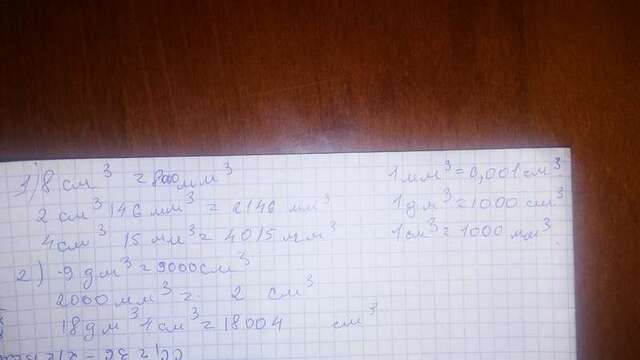 1) 8 см³ = 8000 мм³
2 см³ 146 мм³ = 2146 мм³
4 см³ 15 мм³ = 4015 мм³
2) 9 дм³ = 9000 см³
2000 мм³ = 2 см³
18 дм³ 4 см³ = 18004 см³
1 мм³ = 0,001 см³
1 дм³ = 1000 см³
1 см³ = 1000 мм³